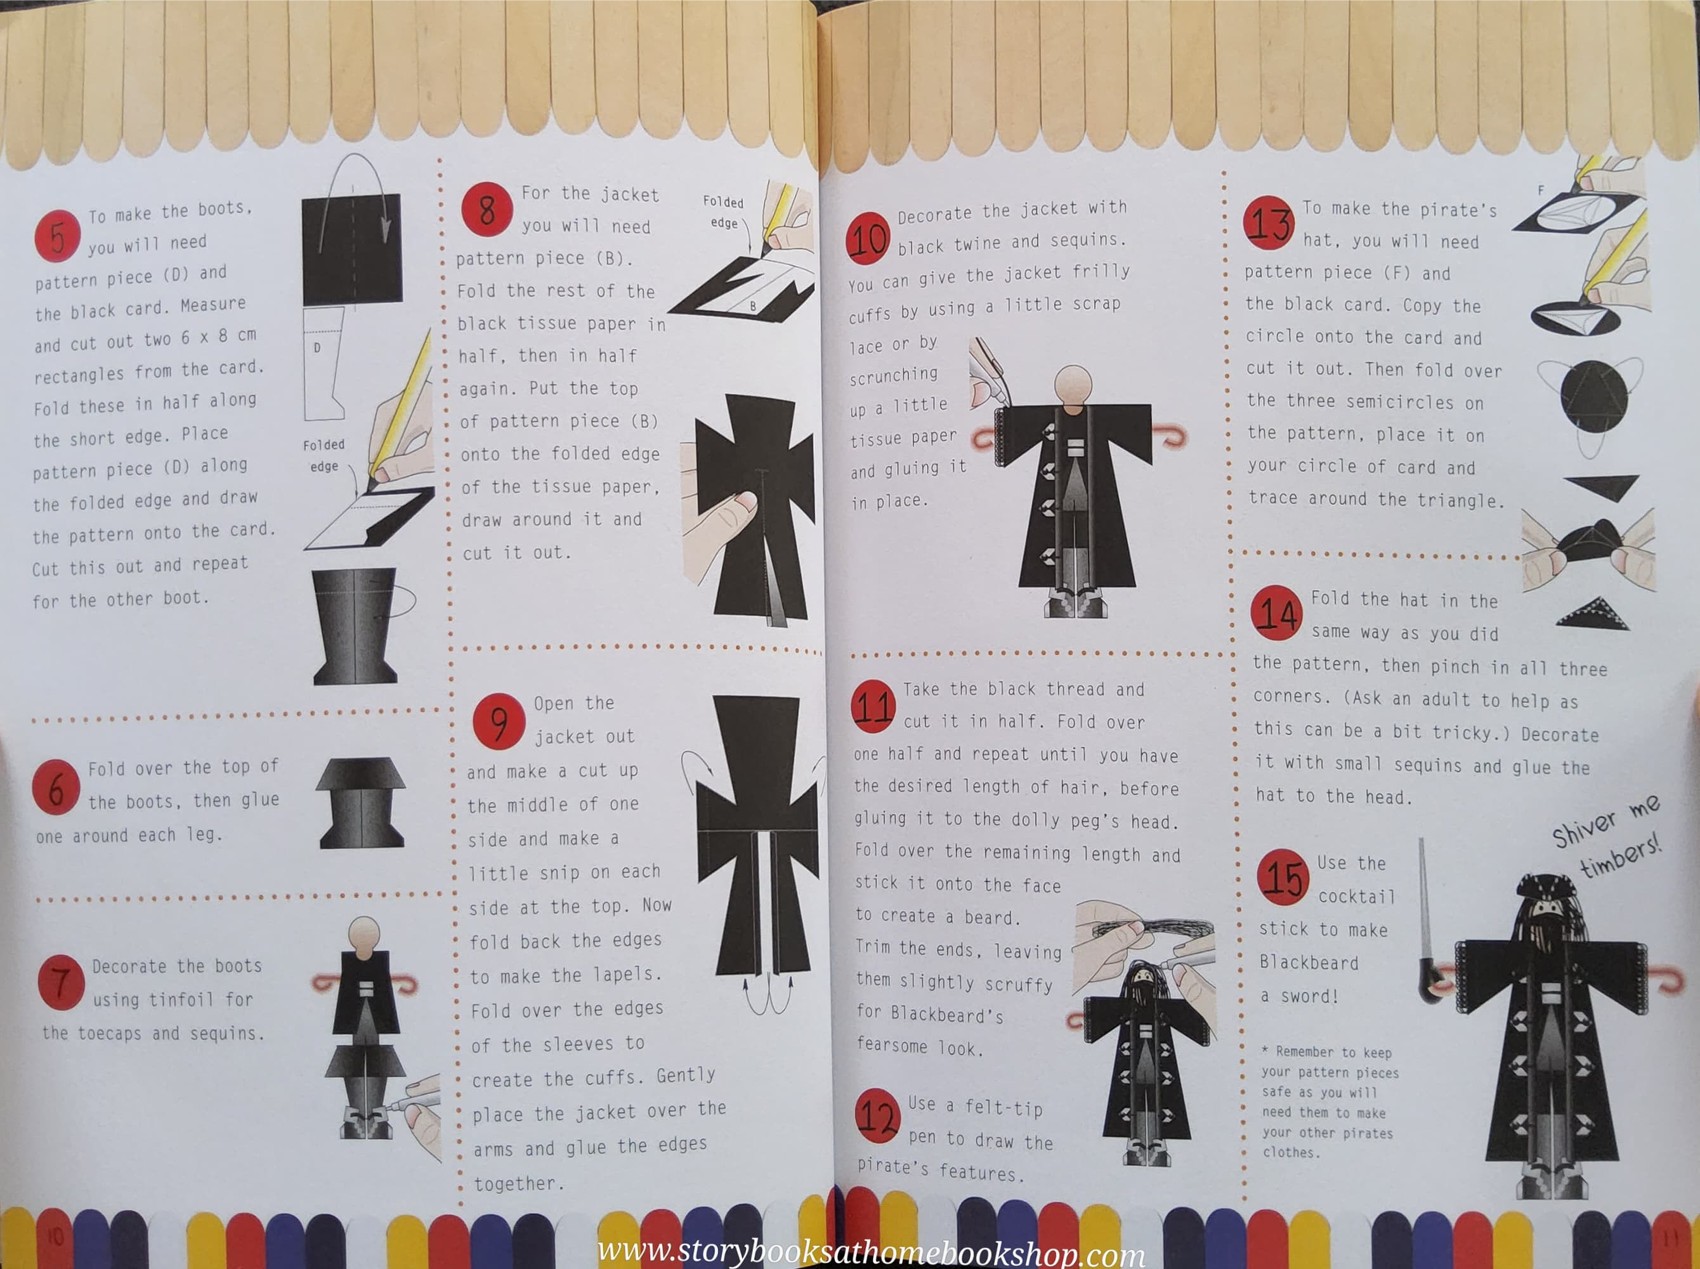 5
To make the boots,
you will need
pattern piece (D) and
the black card. Measure
and cut out two 6 x 8 cm
rectangles from the card.
Fold these in half along
the short edge. Place
pattern piece (D) along
the folded edge and draw
the pattern onto the card.
Cut this out and repeat
for the other boot.
D
Folded
edge
6
Fold over the top of
the boots, then glue
one around each leg.
7
Decorate the boots
using tinfoil for
the toecaps and sequins.
8
For the jacket
you will need
pattern piece (B).
Fold the rest of the
black tissue paper in
half, then in half
again. Put the top
of pattern piece (B)
onto the folded edge
of the tissue paper,
draw around it and
cut it out.
Folded
edge
B
9
Open the
jacket out
and make a cut up
the middle of one
side and make a
little snip on each
side at the top. Now
fold back the edges
to make the lapels.
Fold over the edges
of the sleeves to
create the cuffs. Gently
place the jacket over the
arms and glue the edges
together.
10
10
Decorate the jacket with
black twine and sequins.
You can give the jacket frilly
cuffs by using a little scrap
lace or by
scrunching
up a little
tissue paper
and gluing it
in place.
11
Take the black thread and
cut it in half. Fold over
one half and repeat until you have
the desired length of hair, before
gluing it to the dolly peg's head.
Fold over the remaining length and
stick it onto the face
to create a beard.
Trim the ends, leaving
them slightly scruffy
for Blackbeard's
fearsome look.
12
Use a felt-tip
pen to draw the
pirate's features.
13
To make the pirate's
hat, you will need
pattern piece (F) and
the black card. Copy the
circle onto the card and
cut it out. Then fold over
the three semicircles on
the pattern, place it on
your circle of card and
trace around the triangle.
F
14
Fold the hat in the
same way as you did
the pattern, then pinch in all three
corners. (Ask an adult to help as
this can be a bit tricky.) Decorate
it with small sequins and glue the
hat to the head.
Shiver me
timbers!
15
Use the
cocktail
stick to make
Blackbeard
a sword!
* Remember to keep
your pattern pieces
safe as you will
need them to make
your other pirates
clothes.
11
www.storybooksathomebookshop.com